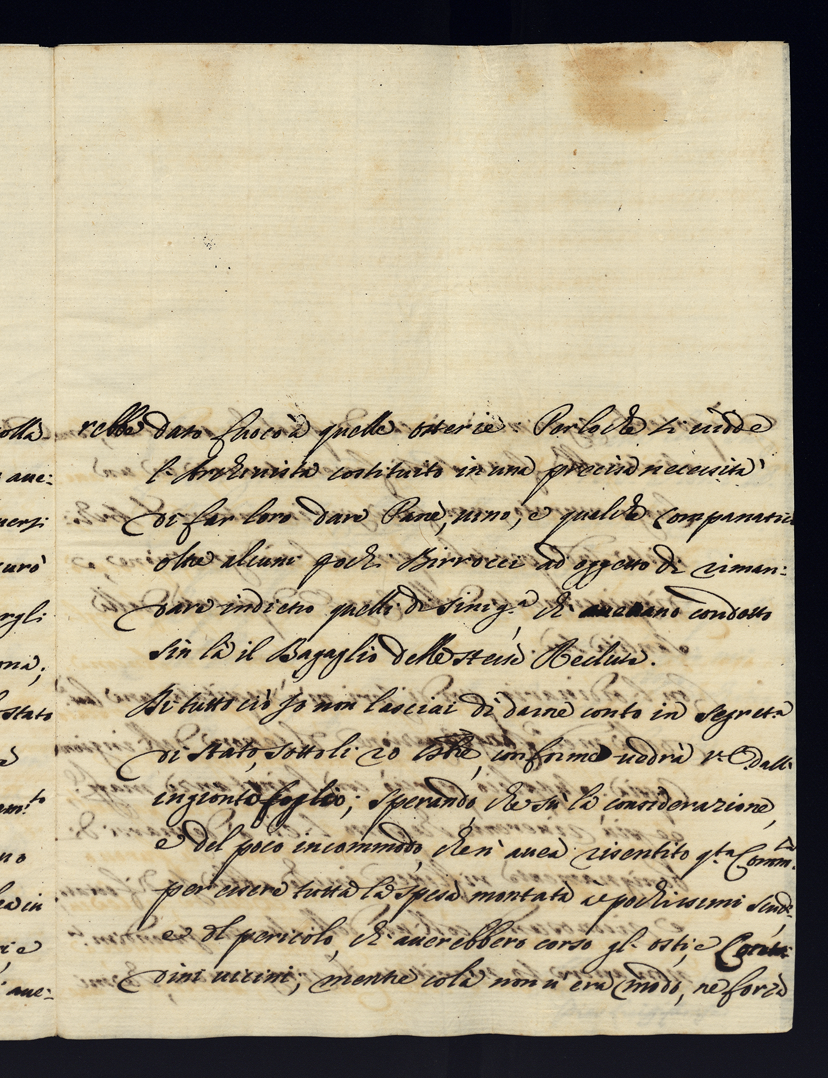 rebbe dato fuoco à quelle osterie. Perloche si vidde
l'Archivista costituito in una precisa necessità
di far loro dare Pane, vino, e qualche companatico
oltre alcuni pochi Birrocci ad oggetto di riman-
dare indietro quelli di Sinig.ª, ch'avevano condotto
sin là il Bagaglio delle stesse Reclute.
Di tutto ciò Jo non lasciai di darne conto in Segret.ª
di Stato, sotto li 20 conforme vedrà V.E. dall'
ingionto foglio; sperando, che su la considerazione,
e del poco incommodo, che n'avea risentito q.ta Comm.tà
per essere tutta la spesa montata a pochissimi scudi
e del pericolo, ch'averebbero corso gl'osti, e Conta-
dini vicini, mentre colà non v'era modo, ne forza
olla
ave-
versi
curò
ergli
stato
no
ave-